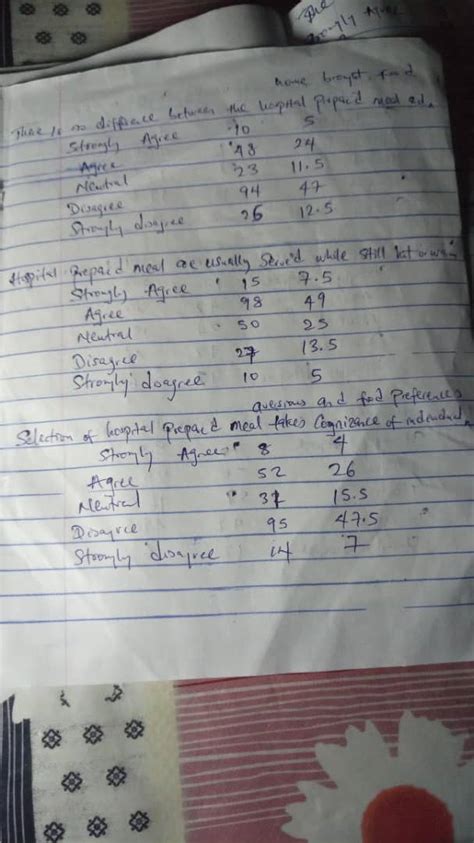 The
Strongly Agree
home brought food
There is no difference between the hospital prepaid meal and
Strongly Agree 10 5
Agree 48 24
Neutral 23 11.5
Disagree 94 47
Strongly disagree 26 12.5
Hospital prepaid meal are usually served while still hot or warm
Strongly Agree 15 7.5
Agree 98 49
Neutral 50 25
Disagree 27 13.5
Strongly disagree 10 5
aversions and food preferences
Selection of hospital prepaid meal takes cognizance of individual
Strongly Agree 8 4
Agree 52 26
Neutral 31 15.5
Disagree 95 47.5
Strongly disagree 14 7